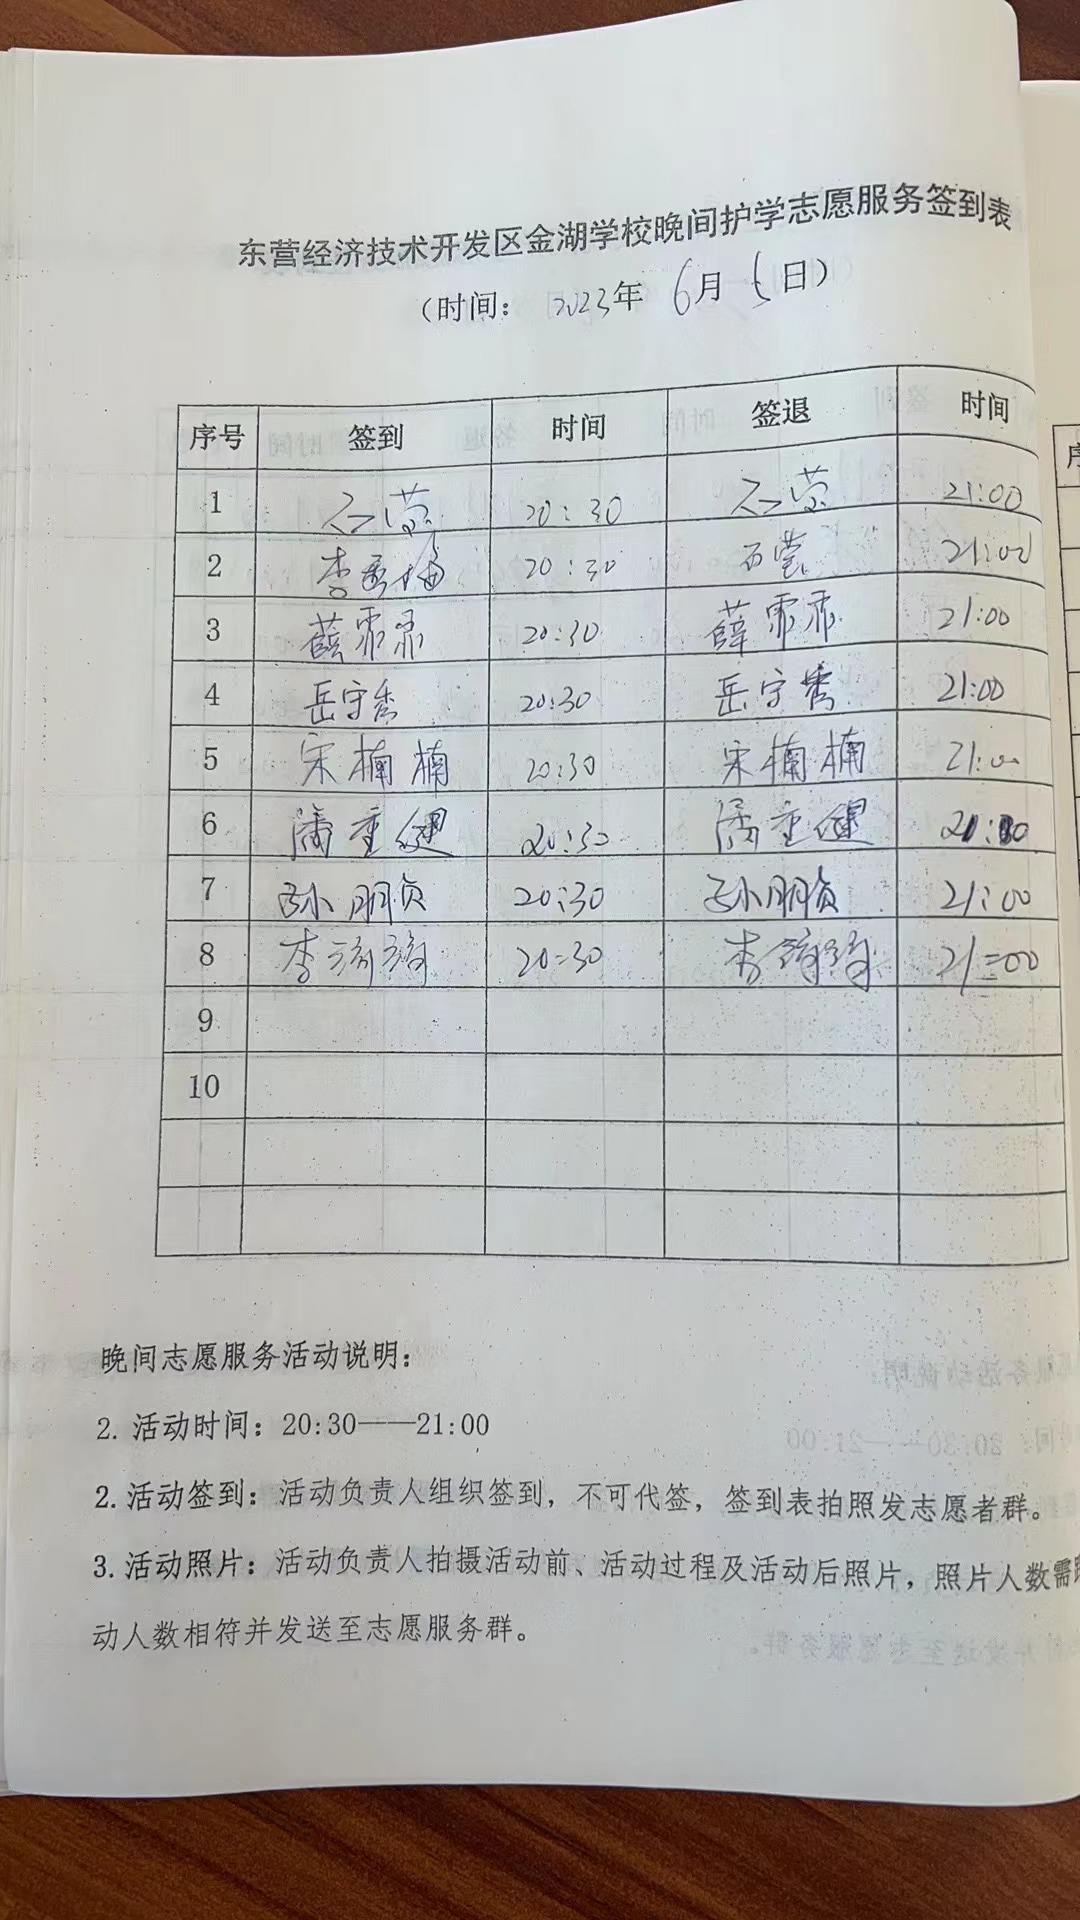 东营经济技术开发区金湖学校晚间护学志愿服务签到表
（时间： 2023年 6月 5日）
序号 签到 时间 签退 时间
1 石莹 20:30 石莹 21:00
2 李秀梅 20:30 石莹 21:00
3 薛霏霏 20:30 薛霏霏 21:00
4 岳守秀 20:30 岳守秀 21:00
5 宋楠楠 20:30 宋楠楠 21:00
6 潘重健 20:30 潘重健
7 孙朋贞 20:30 孙朋贞 21:00
8 李琦琦 20:30 李琦琦 21:00
9
10
晚间志愿服务活动说明：
2. 活动时间：20:30——21:00
2. 活动签到：活动负责人组织签到，不可代签，签到表拍照发志愿者群。
3. 活动照片：活动负责人拍摄活动前、活动过程及活动后照片，照片人数需
动人数相符并发送至志愿服务群。